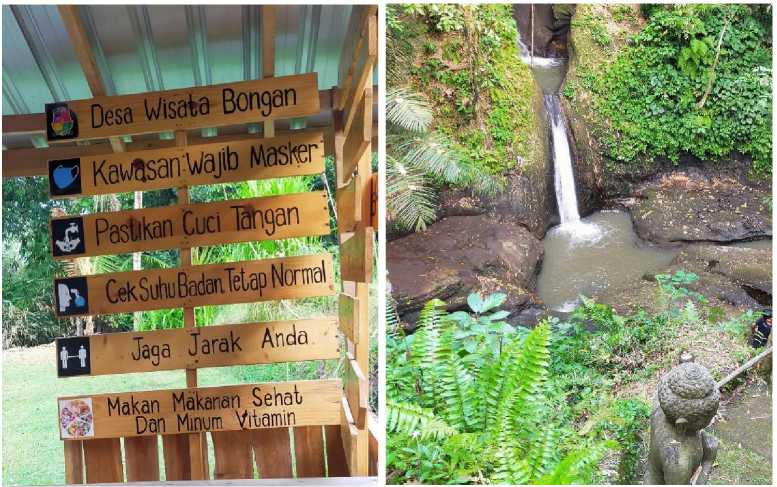 Desa Wisata Bongan
Kawasan Wajib Masker
Pastikan Cuci Tangan
Cek Suhu Badan Tetap Normal
Jaga Jarak Anda
Makan Makanan Sehat
Dan Minum Vitamin